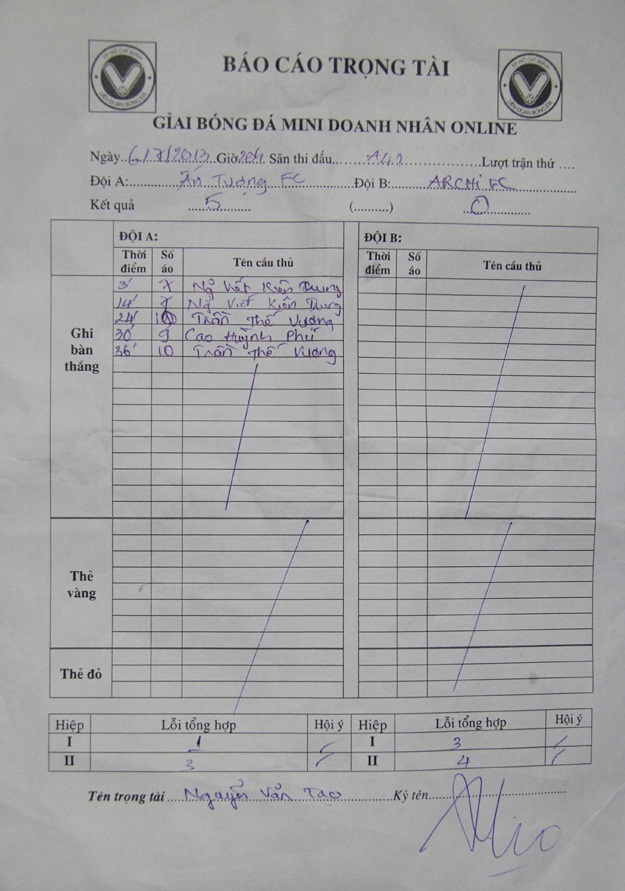 TP HỒ CHÍ MINH LIÊN ĐOÀN BÓNG ĐÁ
BÁO CÁO TRỌNG TÀI
GIẢI BÓNG ĐÁ MINI DOANH NHÂN ONLINE
Ngày..6/7/2013 Giờ 20h Sân thi đấu......A41.........Lượt trận thứ ....
Đội A:.......Ấn Tượng FC......Đội B:.......ARCHI FC.......
Kết quả ......5...... (..........) ......0......
ĐỘI A: ĐỘI B:
Thời điểm Số áo Tên cầu thủ Thời điểm Số áo Tên cầu thủ
Ghi bàn thắng
3' 7 Ng Viết Kiến Dung
14' 7 Ng Viết Kiến Dung
24' 10 Trần Thế Vương
30' 9 Cao Huỳnh Phú
36' 10 Trần Thế Vương
Thẻ vàng
Thẻ đỏ
Hiệp Lỗi tổng hợp Hội ý Hiệp Lỗi tổng hợp Hội ý
I 1 I 3
II 3 II 4
Tên trọng tài ....Nguyễn Văn Tạo............Ký tên